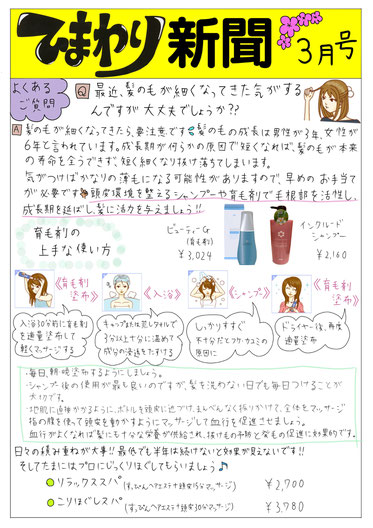 ひまわり新聞
3月号
よくある
ご質問
Q 最近、髪の毛が細くなってきた気がする
んですが大丈夫でしょうか??
A 髪の毛が細くなってきたら、要注意です 髪の毛の成長は男性が3年、女性が
6年と言われています。成長期が何らかの原因で短くなれば、髪の毛が本来
の寿命を全うできず、短く細くなり抜け落ちてしまいます。
気がつけばかなりの薄毛になる可能性がありますので、早めのお手当て
が必要です 頭皮環境を整えるシャンプーや育毛剤で毛根部を活性し、
成長期を延ばし、髪に活力を与えましょう!!
育毛剤の
上手な使い方
ビューティーG
(育毛剤)
¥3,024
インクルード
シャンプー
¥2,160
《育毛剤塗布》
《入浴》
《シャンプー》
《育毛剤塗布》
入浴30分前に育毛剤
を適量塗布して
軽くマッサージする
キャップまたは蒸しタオルで
3分以上十分に温めて
成分の浸透をたすける
しっかりすすぐ
不十分だとフケ・カユミの
原因に
ドライヤー後、再度
適量塗布
・毎日、朝・晩塗布するようにしましょう。
・シャンプー後の使用が最も良いのですが、髪を洗わない日でも毎日つけることが
大切です。
・地肌に直接かかるように、ボトルを頭皮に近づけ、まんべんなく振りかけて、全体をマッサージ
指の腹を使って頭皮を動かすようにマッサージして血行を促進させましょう。
血行がよくなれば髪にも十分な栄養が供給され、抜け毛の予防と発毛の促進に効果的です。
日々の積み重ねが大事!! 最低でも半年は続けないと効果が見えないです!!
そしてたまにはプロにじっくりほぐしてもらいましょう♪
リラックススパ (すっぴんヘアエステ+頭皮15分マッサージ) ¥2,700
こりほぐしスパ (すっぴんヘアエステ+頭皮30分マッサージ) ¥3,780